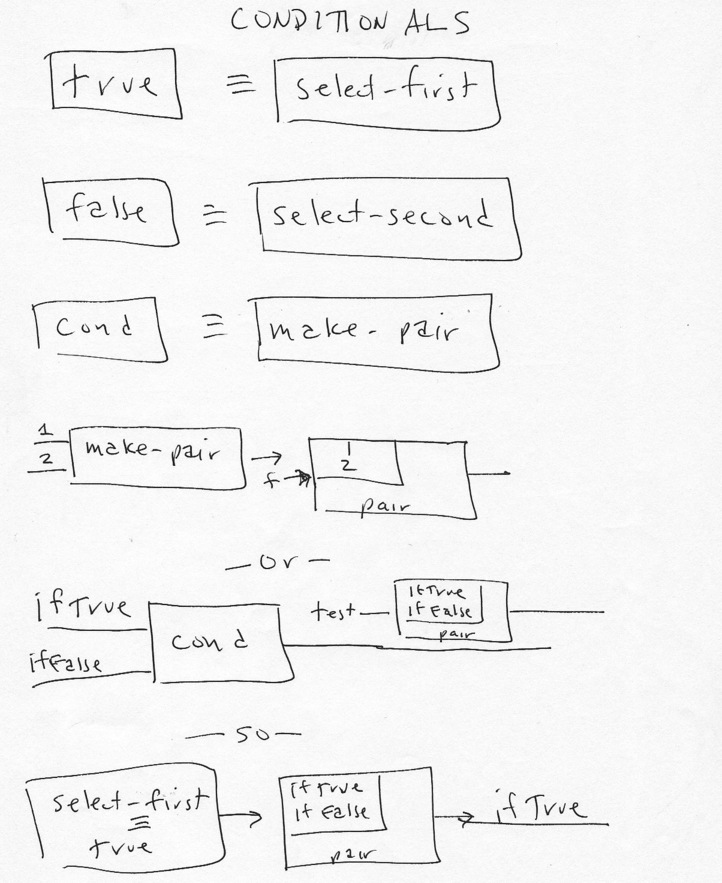 CONDITIONALS
true ≡ select-first
false ≡ select-second
cond ≡ make-pair
1
2 make-pair → f → 1
2
pair
— or —
ifTrue
ifFalse cond test ifTrue
ifFalse
pair
— so —
select-first
≡
true → ifTrue
ifFalse
pair → ifTrue